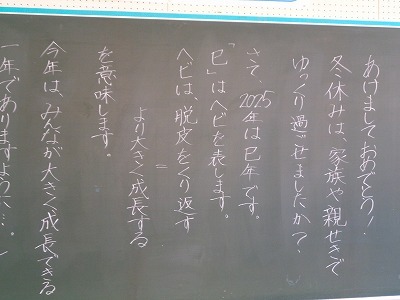 あけましておめでとう！
冬休みは、家族や親せきで
ゆっくり過ごせましたか？
さて、2025年は巳年です。
「巳」はヘビを表します。
ヘビは、脱皮をくり返す
＝
より大きく成長する
を意味します。
今年は、みんなが大きく成長できる
一年でありますように…。